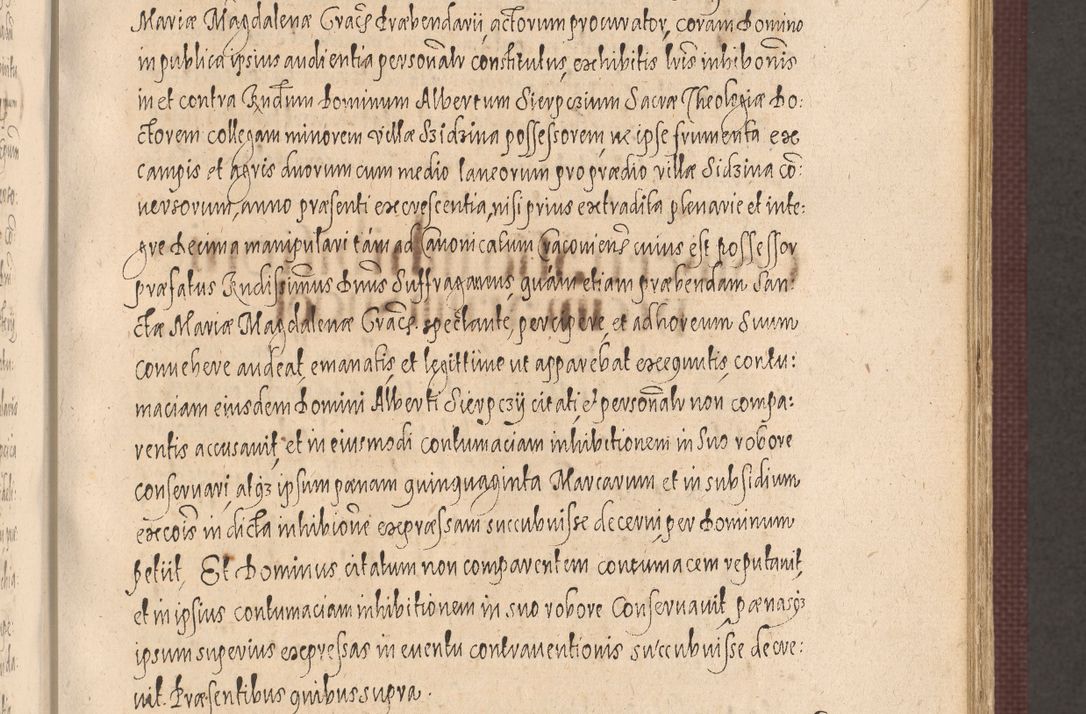 Mariæ Magdalenæ Gracē Præbendarij, actorum procurator, coram Domino
in publica ipsius audientia personalr constitutus, exhibitis lris inhibonis
in et contra Rndum Dominum Albertum Sierpczium Sacræ Theologiæ Do:
ctorem collegam minorem villæ Sidzina possessorem, ne ipse frumenta ex
campis et agris duorum cum medio laneorum pro prædio villæ Sidzina cō:
versorum, anno præsenti excrescentia, nisi prius extradita plenarie et inte:
gre Decima manipulari tám ad Canonicatum Cracoviens̄ cuius est Possessor
præfatus Rndissimus Dnus Suffraganeus, quám etiam præbendam San:
ctæ Mariæ Magdalenæ Gracē. spectante, percipere, et ad horeum Suum
convehere audeat, emanatis, et legittime ut apparebat exequutis, contu:
maciam eiusdem Domini Alberti Sierpczij citati, et personalr non compa:
rentis accusavit, et in eiusmodi contumaciam inhibitionem in Suo robore
conservari, atq3 ipsum pænam quinquaginta Marcarum et in subsidium
excois in dicta inhibione expræssam succubuisse decerni per Dominum
petiit, Et Dominus citatum non comparentem contumacem reputavit,
et in ipsius contumaciam inhibitionem in suo robore Conservavit, pænasq3
ipsum superius expressas in eventu contraventionis succubuisse decre:
vit. Præsentibus quibus supra.